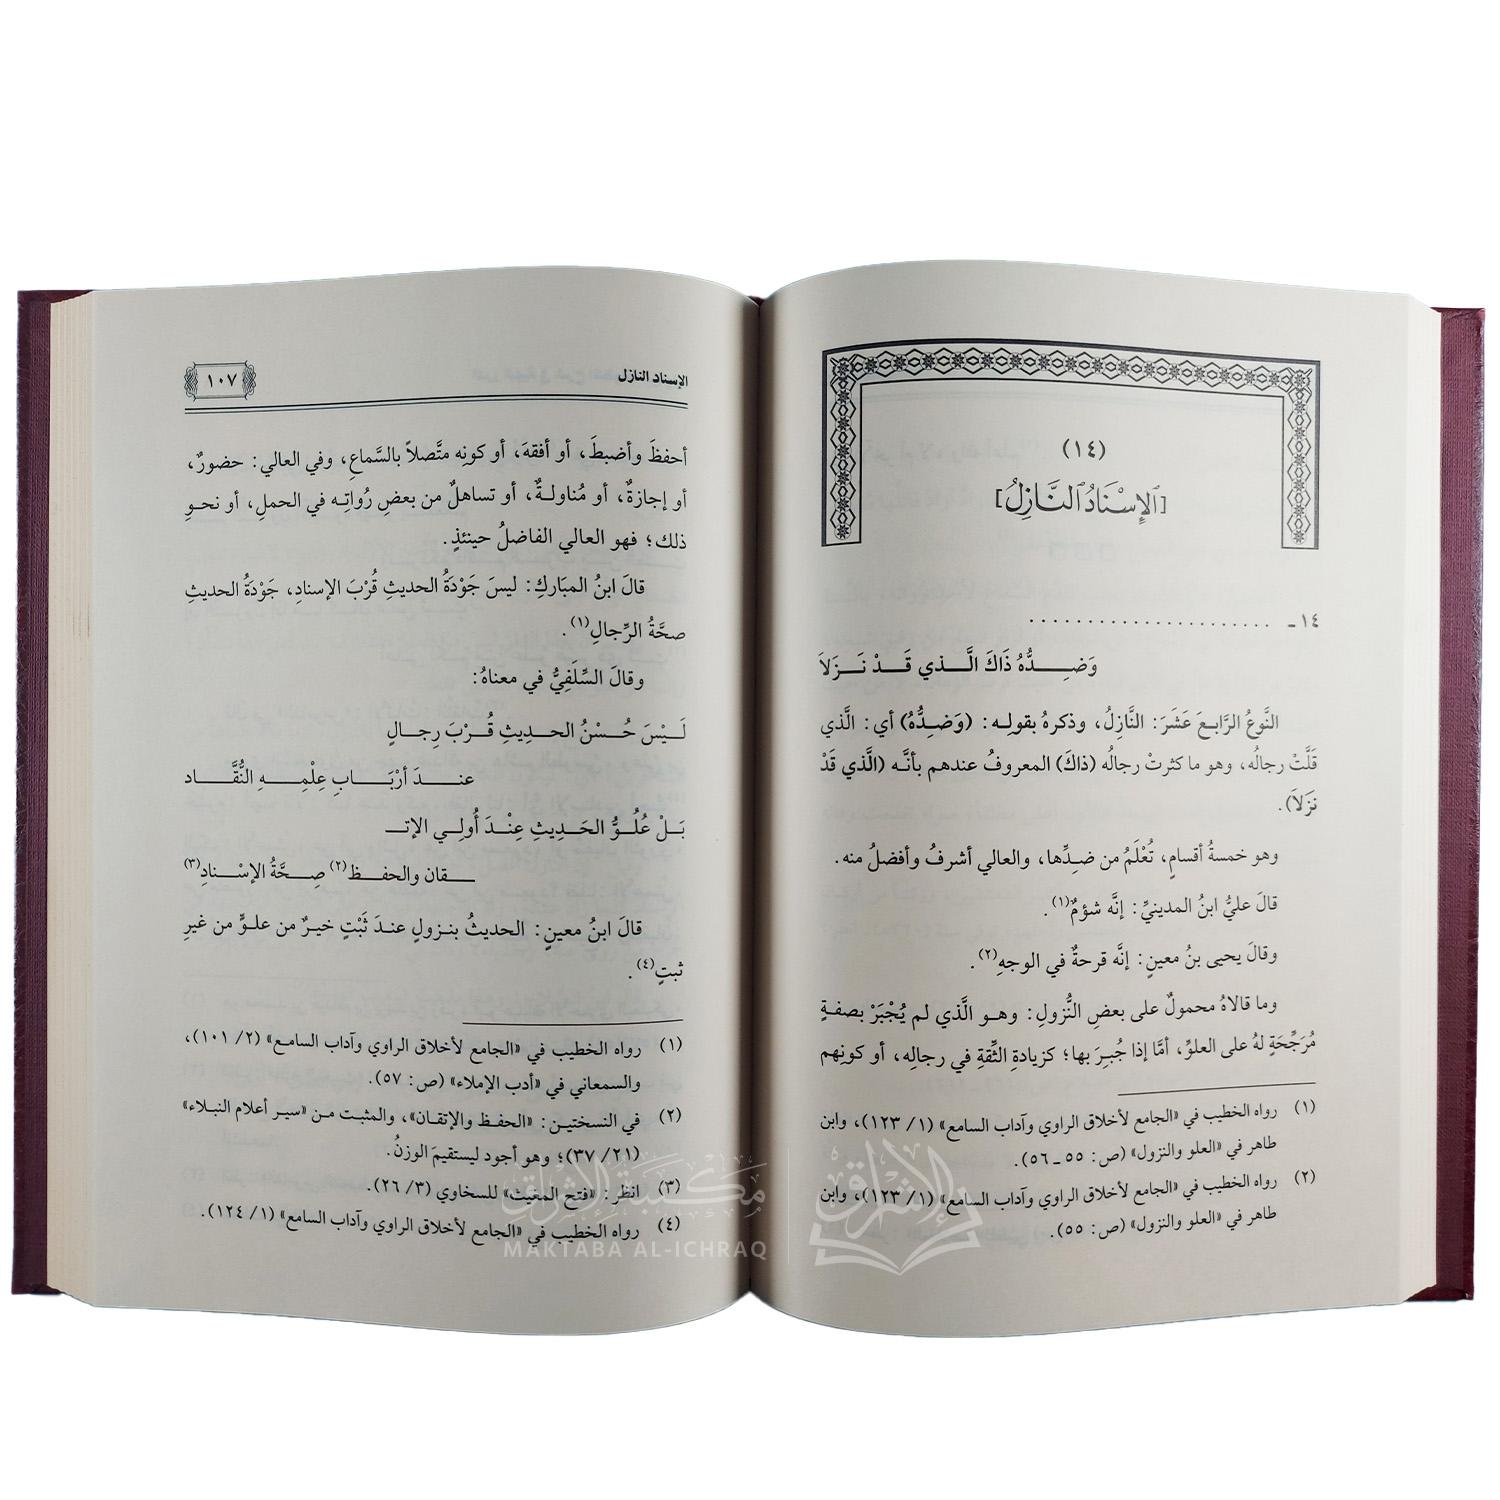 (١٤)
[الإِسْنَادُ النَّازِلُ]
١٤ـ ......................
وَضِـدُّهُ ذَاكَ الَّـذي قَـدْ نَـزَلَا
النَّوعُ الرَّابعَ عَشَرَ: النَّازِلُ، وذكرهُ بقولِـه: (وَضدُّهُ) أي: الَّذي
قَلَّتْ رجالُه، وهو ما كثرتْ رجالُه (ذاكَ) المعروفُ عندهم بأنَّه (الَّذي قَدْ
نزَلَا).
وهو خمسةُ أقسامٍ، تُعْلَمُ من ضدِّها، والعالي أشرفُ وأفضلُ منه.
قالَ عليُّ ابنُ المدينيِّ: إنَّه شؤمٌ(١).
وقالَ يحيى بنُ معينٍ: إنَّه قرحةٌ في الوجهِ(٢).
وما قالاهُ محمولٌ على بعضِ النُّزولِ: وهـو الَّذي لم يُجْبَرْ بصفةٍ
مُرَجِّحَةٍ لهُ على العلوِّ، أمَّا إذا جُبِرَ بها؛ كزيادةِ الثِّقةِ في رجالِه، أو كونِهم
(١) رواه الخطيب في «الجامع لأخلاق الراوي وآداب السامع» (١/ ١٢٣)، وابن
طاهر في «العلو والنزول» (ص: ٥٥ـ ٥٦).
(٢) رواه الخطيب في «الجامع لأخلاق الراوي وآداب السامع» (١/ ١٢٣)، وابن
طاهر في «العلو والنزول» (ص: ٥٥).
الإسناد النازل
١٠٧
أحفظَ وأضبطَ، أو أفقهَ، أو كونِه متَّصلاً بالسَّماعِ، وفي العالي: حضورٌ،
أو إجازةٌ، أو مُناولـةٌ، أو تساهلٌ من بعضِ رُواتِـه في الحملِ، أو نحـوِ
ذلك؛ فهو العالي الفاضلُ حينئذٍ.
قالَ ابنُ المبَاركِ: ليسَ جَوْدَةُ الحديثِ قُرْبَ الإسنادِ، جَوْدَةُ الحديثِ
صحَّةُ الرِّجالِ(١).
وقالَ السِّلَفِيُّ في معناهُ:
لَـيْسَ حُـسْنُ الحـديثِ قُـرْبَ رِجـالٍ
عنـدَ أرْبَـابِ عِلْمِـهِ النُّقَّـاد
بَـلْ عُلُـوُّ الحَـدِيثِ عِنْـدَ أُولـي الإتـ
ـقان والحفـظ(٢) صِـحَّةُ الإسْـنادِ(٣)
قالَ ابنُ معينٍ: الحديثُ بنـزولٍ عندَ ثَبْتٍ خيرٌ من علـوٍّ من غيرِ
ثبتٍ(٤).
(١) رواه الخطيب في «الجامع لأخلاق الراوي وآداب السامـع» (٢/ ١٠١)،
والسمعاني في «أدب الإملاء» (ص: ٥٧).
(٢) في النسختين: «الحفظ والإتقان»، والمثبت مـن «سيـر أعلام النبلاء»
(٢١/ ٣٧)؛ وهو أجود ليستقيمَ الوزنُ.
(٣) انظر: «فتح المغيث» للسخاوي (٣/ ٢٦).
(٤) رواه الخطيب في «الجامع لأخلاق الراوي وآداب السامع» (١/ ١٢٤).
مكتبة الإشراق
MAKTABA AL-ICHRAQ
الإشراق